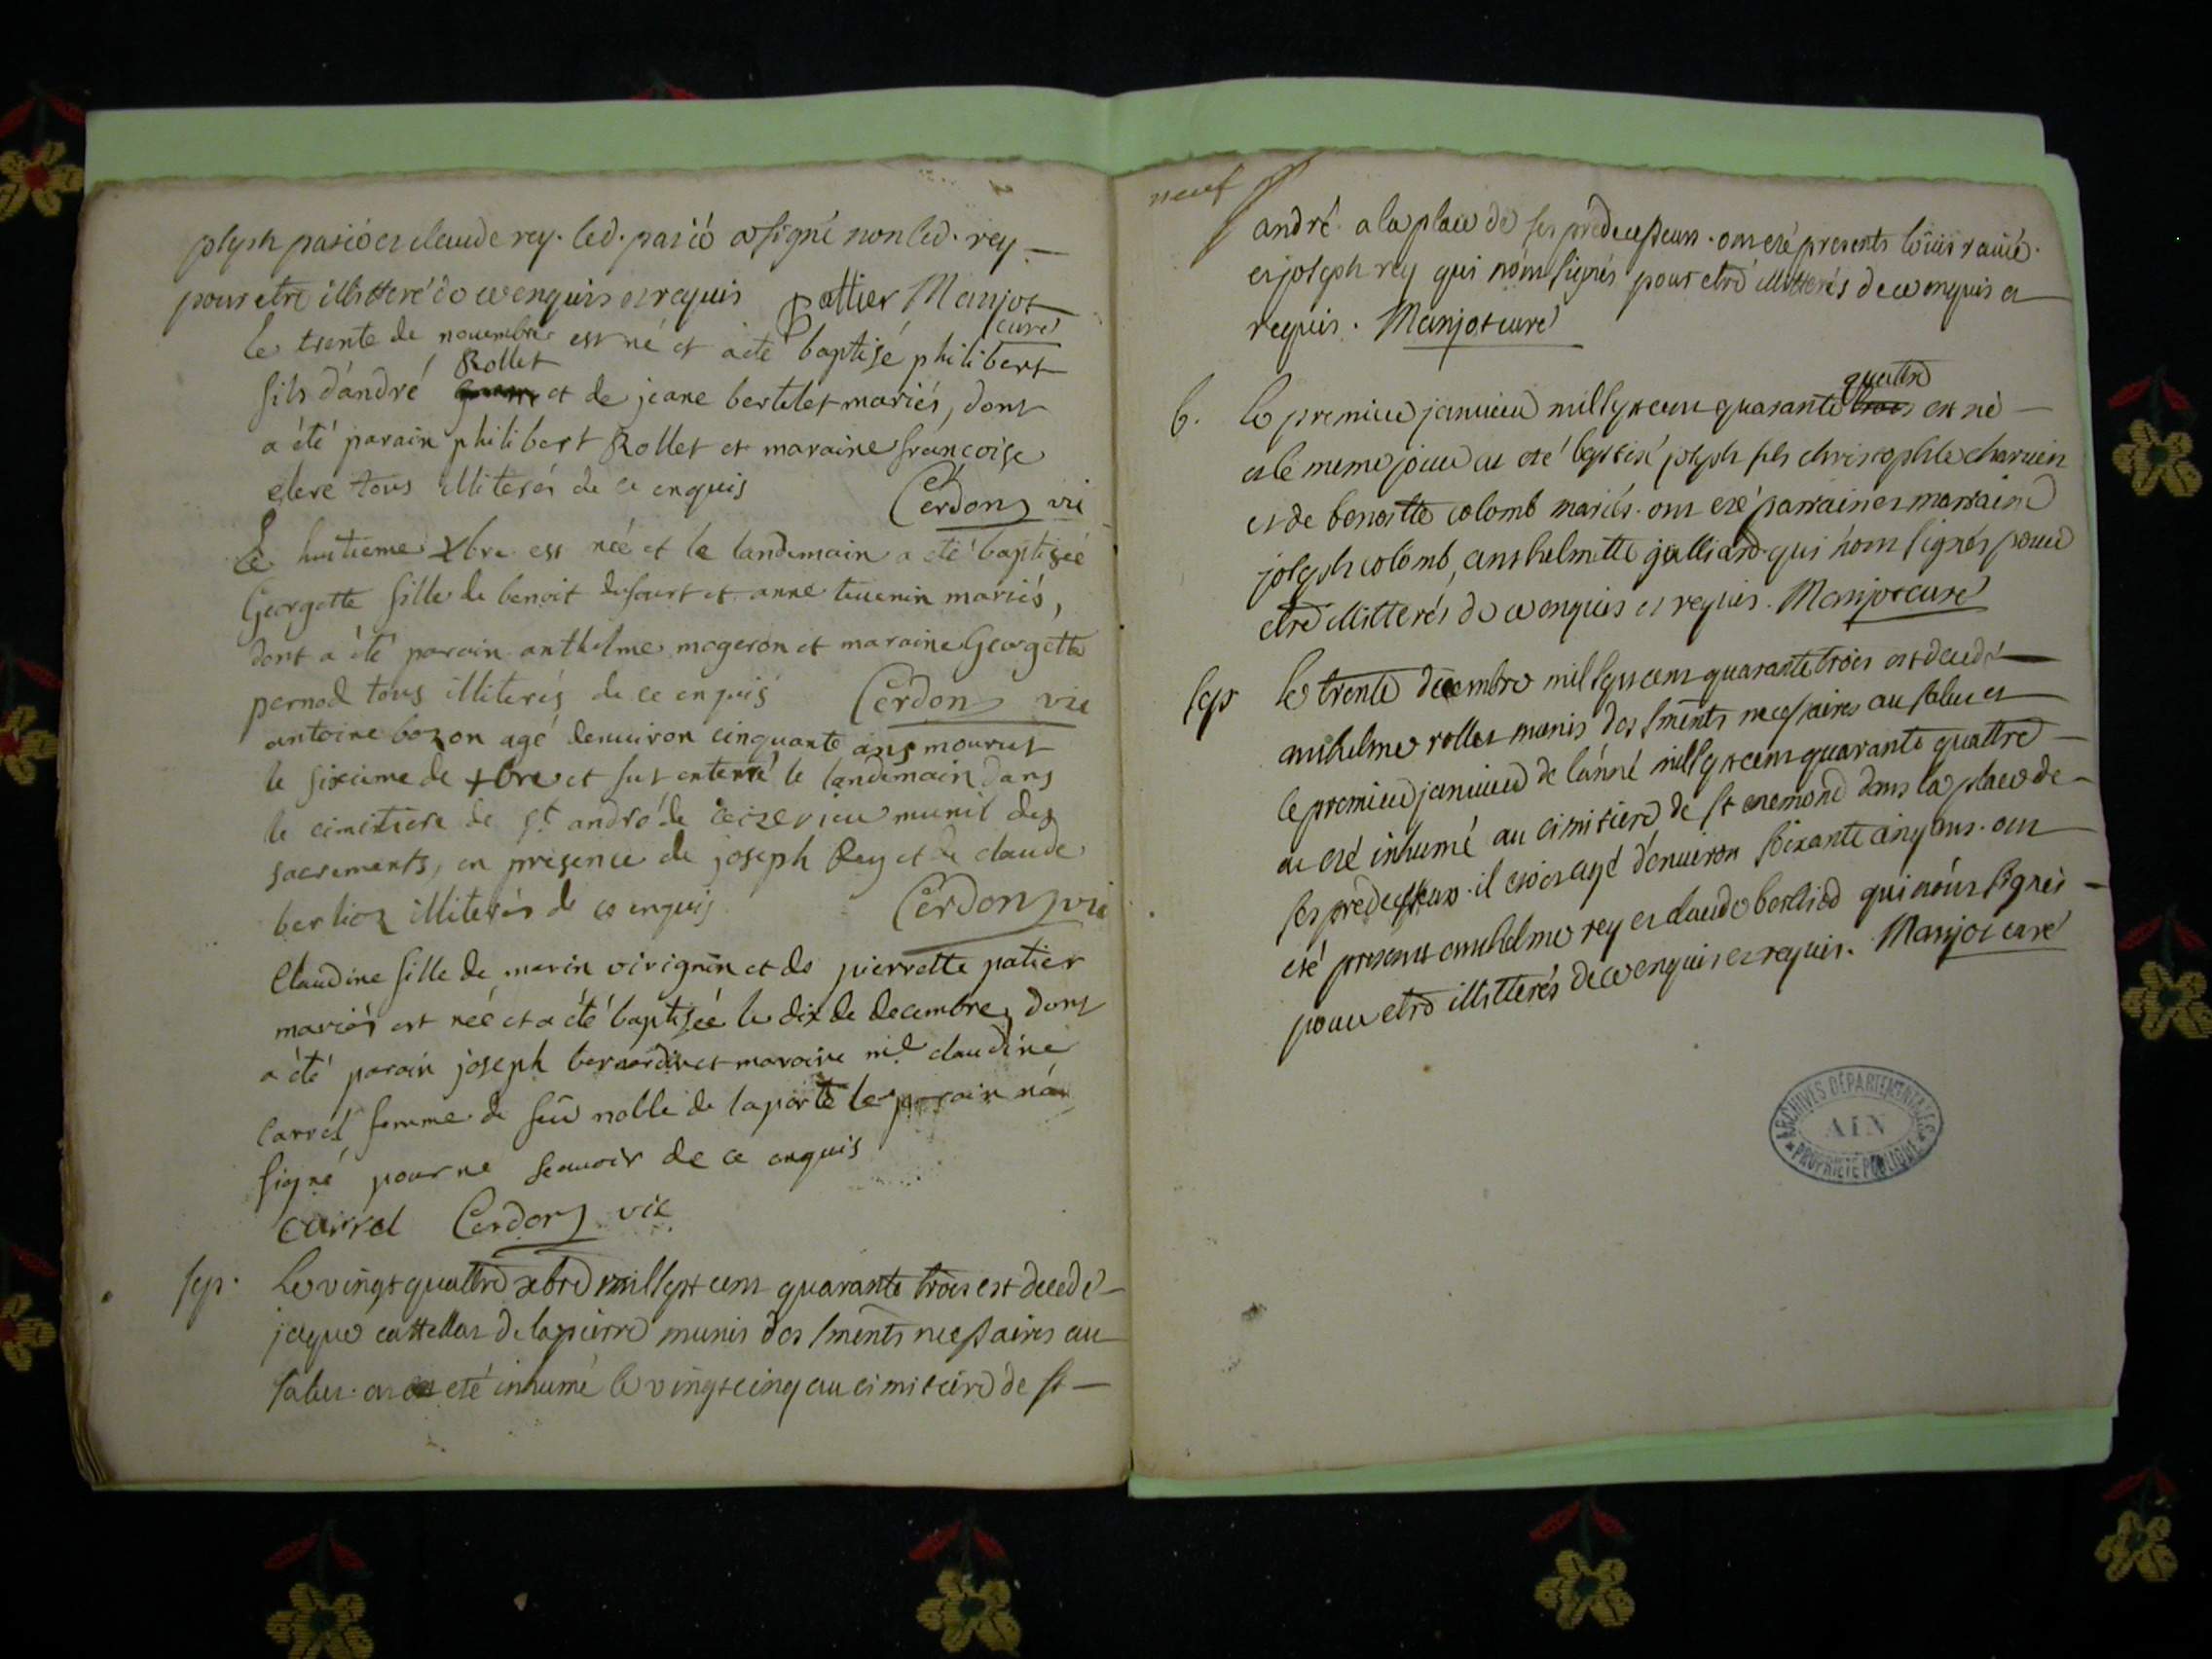 joseph patié et claude rey. led. patié a signé non led. rey —
pour etre illitteré de ce enquis et requis pattier Manjot
curé
le trente de nouembre est né et a eté baptisé philibert
Rollet
fils d'andré et de jeane bertelet mariés, dont
a été parain philibert Rollet et maraine françoise
clere tous illiterés de ce enquis Cerdon vic
Le huitieme xbre est née et le landemain a eté baptisée
Georgette fille de benoit dufour et anne teuenin mariés,
dont a été parain anthelme mogeron et maraine Georgette
pernod tous illiterés de ce enquis Cerdon vic
antoine bozon agé denuiron cinquante ans mourut
le sixieme de xbre et fut enterré le landemain dans
le cimitiere de st andré de ceizerieu munit des
sacrements, en presence de joseph Rey et de claude
berlioz illiterés de ce enquis Cerdon vic
Claudine fille de marin virignin et de pierrette patier
mariés est née et a été baptisée le dix de decembre, dont
a été parain joseph bernardin et maraine mle claudine
Carrel femme de feu noble de laporte le parain n'a
signé pour ne scauoir de ce enquis
Carrel Cerdon vic
sep. Le vingt quattre xbre mil sept cent quarante trois est decedé —
jaque cattellaz de lapierre munis des sments necessaires au
salut. et a eté inhumé le vingt cinq au cimitiere de st —
neuf
andré a la place de ses predecesseurs. ont eté presents loüis
et joseph rey qui n'ont signés pour etre illitterés de ce enquis et
requis. Manjot curé
quattre
b. le premier januier mil sept cent quarante trois est né —
et le meme jour a eté baptisé joseph fils christophle charuin
et de benoitte colomb mariés. ont eté parrain et marraine
joseph colomb, anthelmette galliard qui n'ont signés pour
etre illitterés de ce enquis et requis. Manjot curé
sep le trente decembre mil sept cent quarante trois est decedé —
anthelme rollet munis des sments necessaires au salut et
le premier januier de l'anné mil sept cent quarante quattre —
a eté inhumé au cimitiere de st enemond dans la place de —
ses predecesseurs. il etoit agé d'enuiron soixante cinq ans. ont
eté presents anthelme rey et claude berliod qui n'ont signés —
pour etre illitterés de ce enquis et requis. Manjot curé
ARCHIVES DÉPARTEMENTALES
AIN
PROPRIÉTÉ PUBLIQUE